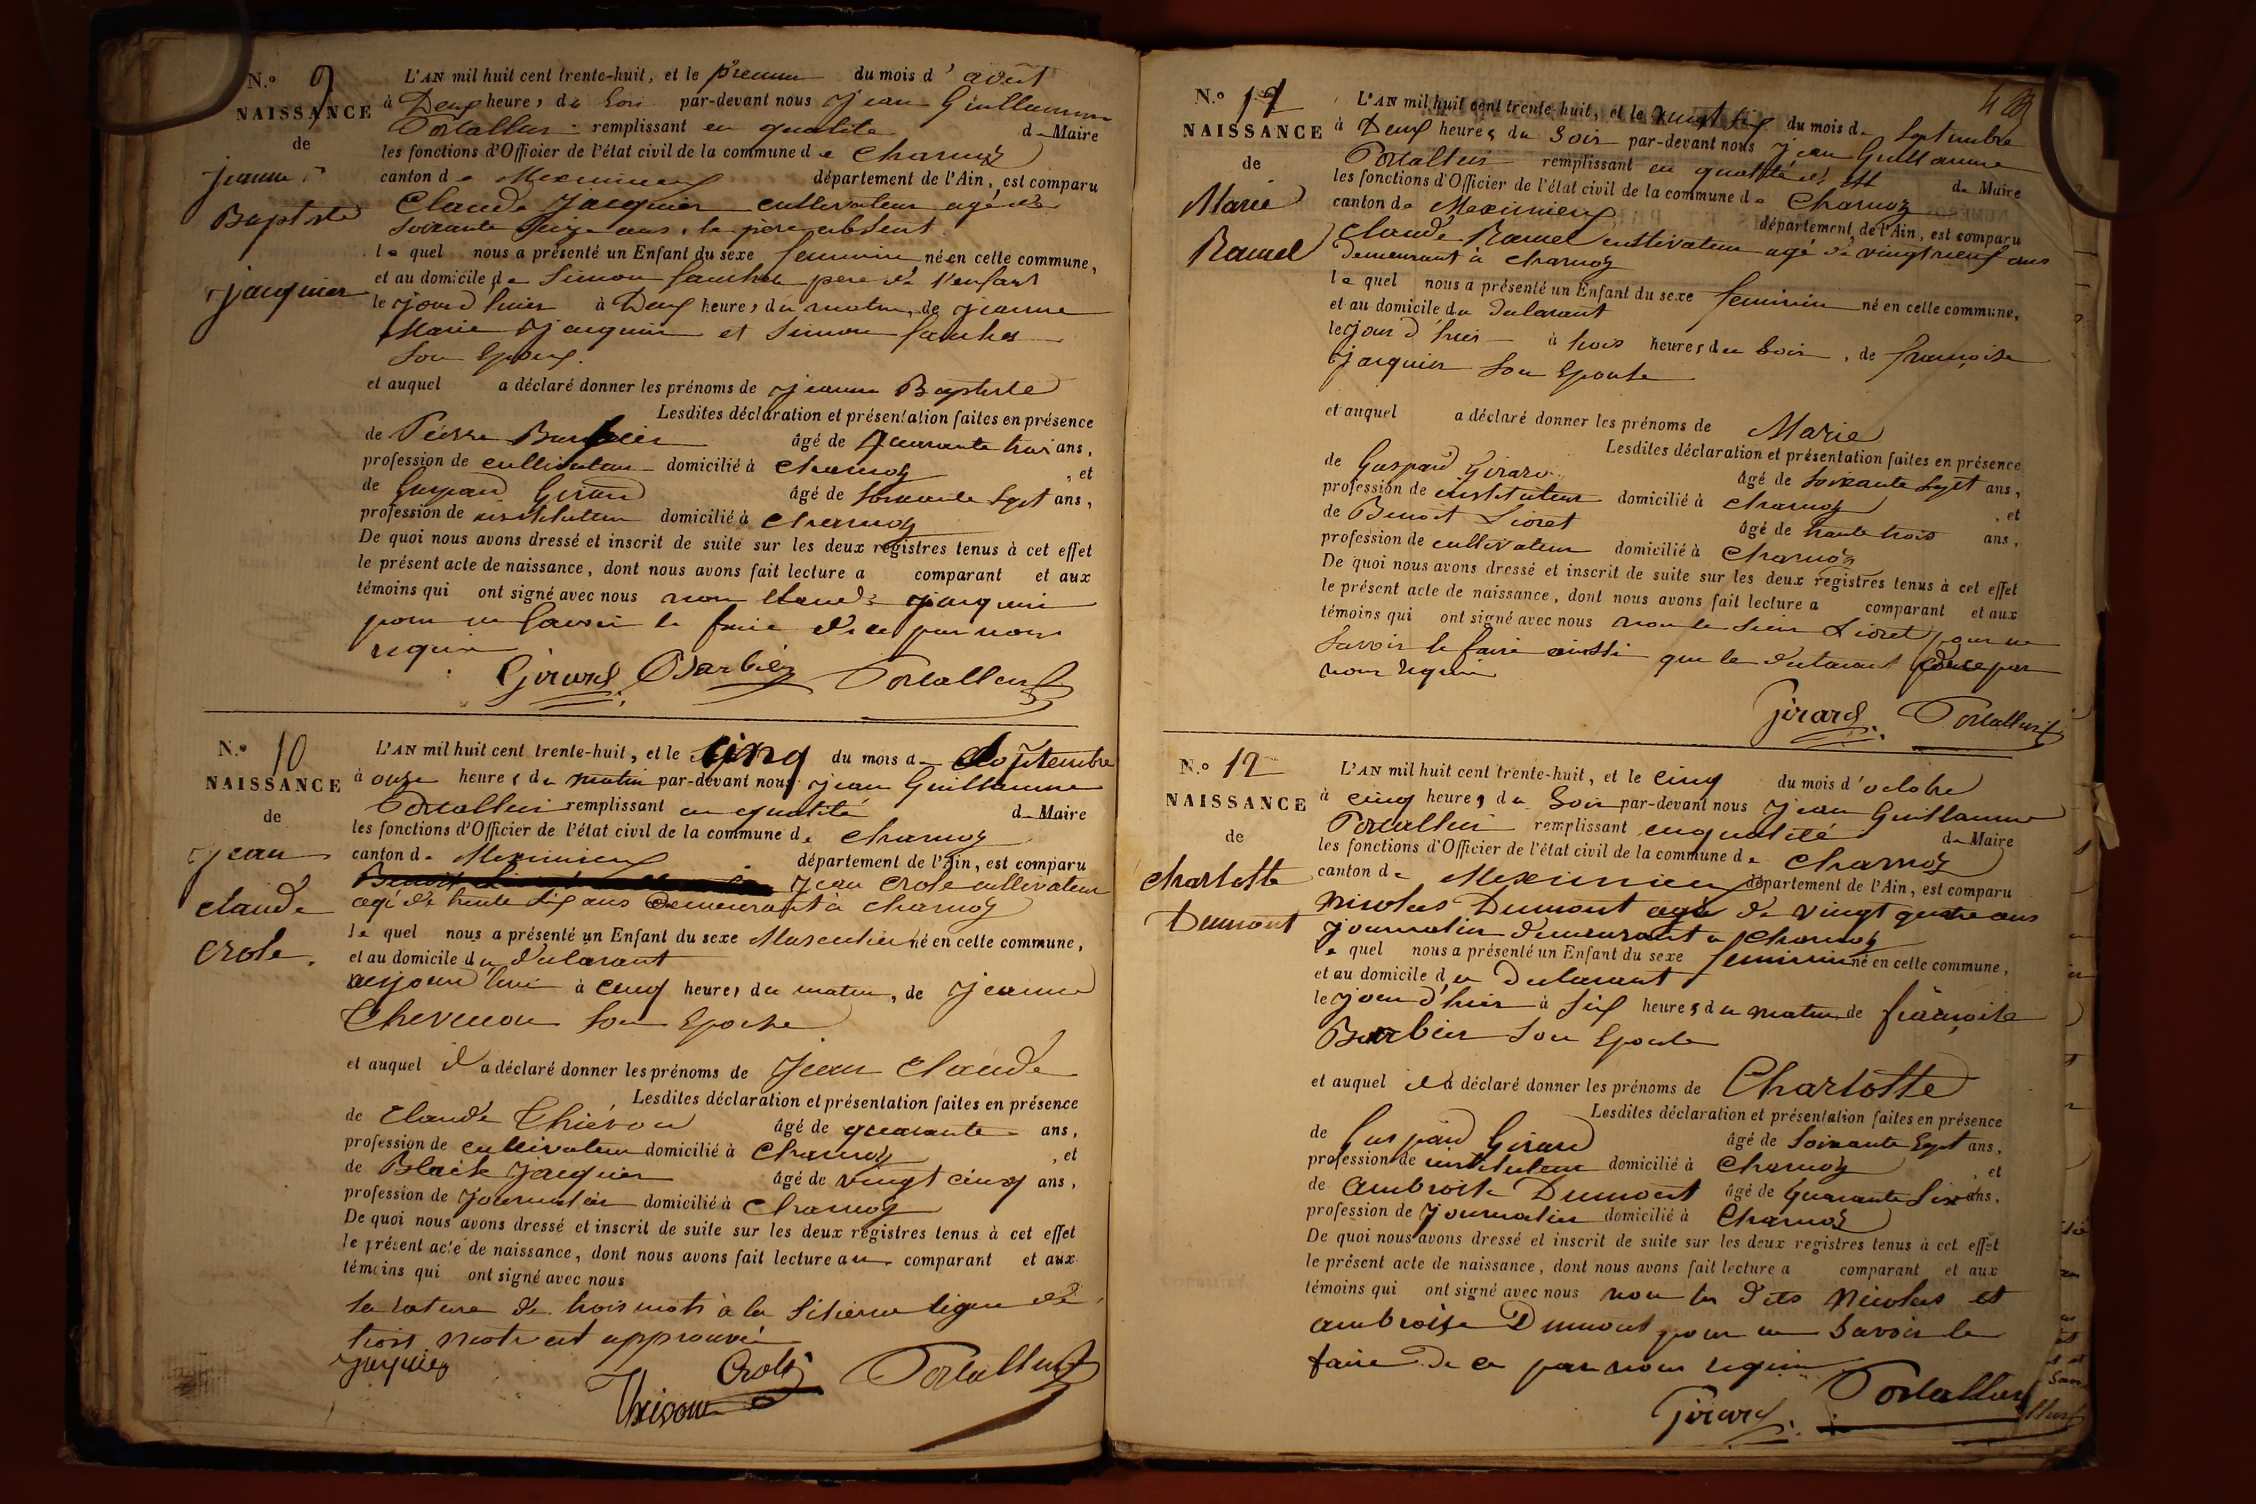 N.o 9
NAISSANCE
de
jeanne
Baptiste
jacquier
L'AN mil huit cent trente-huit, et le premier du mois d'août
à Deux heures du Soir par-devant nous jean Guillaume
Portallier remplissant en qualité de Maire
les fonctions d'Officier de l'état civil de la commune de Charnoz
canton de Meximieux département de l'Ain, est comparu
Claude Jacquier cultivateur agé de
soixante seize ans, le père absent
le quel nous a présenté un Enfant du sexe feminin né en cette commune,
et au domicile de Simon père de l'enfant
le jour d'huier à Deux heures du matin, de jeanne
Marie Jacquier et Simon
Son Epoux.
et auquel a déclaré donner les prénoms de jeanne Baptiste
Lesdites déclaration et présentation faites en présence
de Pierre Barbier âgé de quarante trois ans,
profession de cultivateur domicilié à Charnoz, et
de Gaspard Girard âgé de soixante Sept ans,
profession de instituteur domicilié à Charnoz
De quoi nous avons dressé et inscrit de suite sur les deux registres tenus à cet effet
le présent acte de naissance, dont nous avons fait lecture a comparant et aux
témoins qui ont signé avec nous non Claude jacquier
pour ne Savoir le faire de ce par nous
requis
Girard Barbier Portallier
N.o 10
NAISSANCE
de
jean
claude
crole.
L'AN mil huit cent trente-huit, et le cinq du mois de Septembre
à onze heures du matin par-devant nous jean Guillaume
Portallier remplissant en qualité de Maire
les fonctions d'Officier de l'état civil de la commune de Charnoz
canton de Meximieux département de l'Ain, est comparu
Jean Crole cultivateur
agé de trente six ans demeurant à charnoz
le quel nous a présenté un Enfant du sexe Masculin né en cette commune,
et au domicile du déclarant
aujourd'hui à cinq heures du matin, de jeanne
son Epouse
et auquel il a déclaré donner les prénoms de Jean Claude
Lesdites déclaration et présentation faites en présence
de Claude Thiévon âgé de quarante ans,
profession de cultivateur domicilié à Charnoz, et
de Blaise Jacquier âgé de vingt cinq ans,
profession de journalier domicilié à Charnoz
De quoi nous avons dressé et inscrit de suite sur les deux registres tenus à cet effet
le présent acte de naissance, dont nous avons fait lecture au comparant et aux
témoins qui ont signé avec nous
la rature de trois mots à la ligne de
trois mots est approuvée
jacquier Crole Portallier
Thievon
N.o 11
NAISSANCE
de
Marie
Ramel
L'AN mil huit cent trente-huit, et le vingt six du mois de Septembre
à Deux heures du Soir par-devant nous jean Guillaume
Portallier remplissant en qualité de Maire
les fonctions d'Officier de l'état civil de la commune de Charnoz
canton de Meximieux département de l'Ain, est comparu
Claude Ramel cultivateur agé de vingt neuf ans
demeurant à charnoz
le quel nous a présenté un Enfant du sexe feminin né en cette commune,
et au domicile du dularant
le jour d'hier à trois heures du Soir, de françoise
Jacquier Son Epouse
et auquel a déclaré donner les prénoms de Marie
Lesdites déclaration et présentation faites en présence
de Gaspard Girard âgé de soixante Sept ans,
profession de instituteur domicilié à Charnoz, et
de Benoit Lioret âgé de trante trois ans,
profession de cultivateur domicilié à Charnoz
De quoi nous avons dressé et inscrit de suite sur les deux registres tenus à cet effet
le présent acte de naissance, dont nous avons fait lecture a comparant et aux
témoins qui ont signé avec nous non le Sieur Lioret pour ne
Savoir le faire ainssi que le dularant de ce par
nous requis
Girard Portallier
N.o 12
NAISSANCE
de
Charlotte
Dumont
L'AN mil huit cent trente-huit, et le cinq du mois d'octobre
à cinq heures du Soir par-devant nous jean Guillaume
Portallier remplissant en qualité de Maire
les fonctions d'Officier de l'état civil de la commune de Charnoz
canton de Meximieux département de l'Ain, est comparu
Nicolas Dumont agé de vingt quatre ans
journalier demeurant a Charnoz
le quel nous a présenté un Enfant du sexe feminin né en cette commune,
et au domicile du Dularant
le jour d'hier à six heures du matin de françoise
Barbier Son Epouse
et auquel il a déclaré donner les prénoms de Charlotte
Lesdites déclaration et présentation faites en présence
de Gaspard Girard âgé de Soixante Sept ans,
profession de instituteur domicilié à Charnoz, et
de ambroise Dumont âgé de quarante Six ans,
profession de journalier domicilié à Charnoz
De quoi nous avons dressé et inscrit de suite sur les deux registres tenus à cet effet
le présent acte de naissance, dont nous avons fait lecture a comparant et aux
témoins qui ont signé avec nous non les dits Nicolas et
ambroise Dumont pour ne Savoir le
faire de ce par nous requis
Girard Portallier